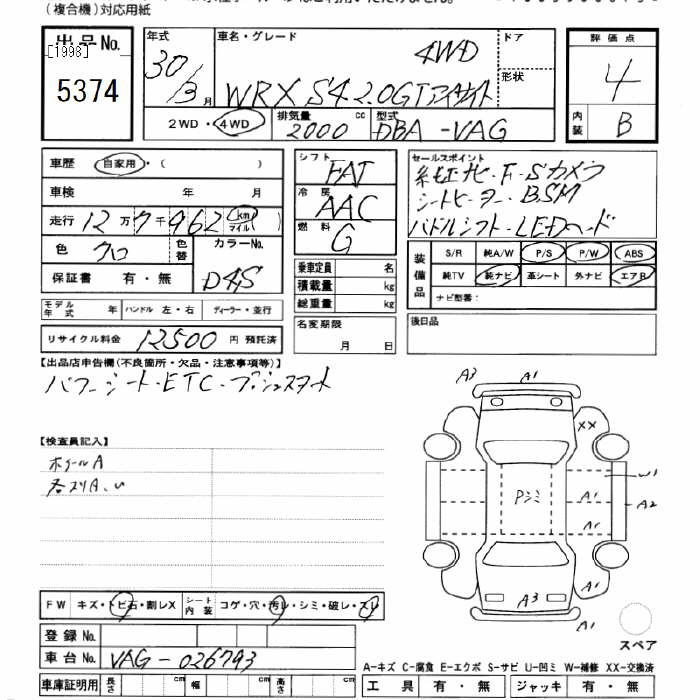 (複合機)対応用紙
出品No. [1998] 5374
年式 30/3月
車名・グレード 4WD
WRX S4 2.0GTアイサイト
ドア
形状
評価点 4
内装 B
2WD・4WD 排気量 2000 cc 型式 DBA-VAG
車歴 自家用・( )
車検 年 月
走行 12万7千962 (km マイル)
色 クロ 色替 カラーNo. D4S
保証書 有・無
モデル年式 年 ハンドル 左・右 ディーラー・並行
リサイクル料金 12500 円 預託済
シフト FAT
冷房 AAC
燃料 G
乗車定員 名
積載量 kg
総重量 kg
名変期限 月 日
セールスポイント
純正ナビ・F・Sカメラ
シートヒーター・BSM
パドルシフト・LEDヘッド
装備品 S/R 純A/W P/S P/W ABS
純TV 純ナビ 革シート 外ナビ エアB
ナビ型番:
後日品
【出品店申告欄(不良箇所・欠品・注意事項等)】
パワーシート・ETC・プッシュスタート
【検査員記入】
ホイールA
各スリA、U
A3 A1
XX
W1
Pシミ A1 A2
A1
A3 A1
A1
スペア
FW キズ・トビ石・割レX シート内装 コゲ・穴・汚レ・シミ・破レ・スレ
登録No.
車台No. VAG-026793
車庫証明用 長さ cm 幅 cm 高さ cm
A-キズ C-腐食 E-エクボ S-サビ U-凹ミ W-補修 XX-交換済
工具 有・無 ジャッキ 有・無